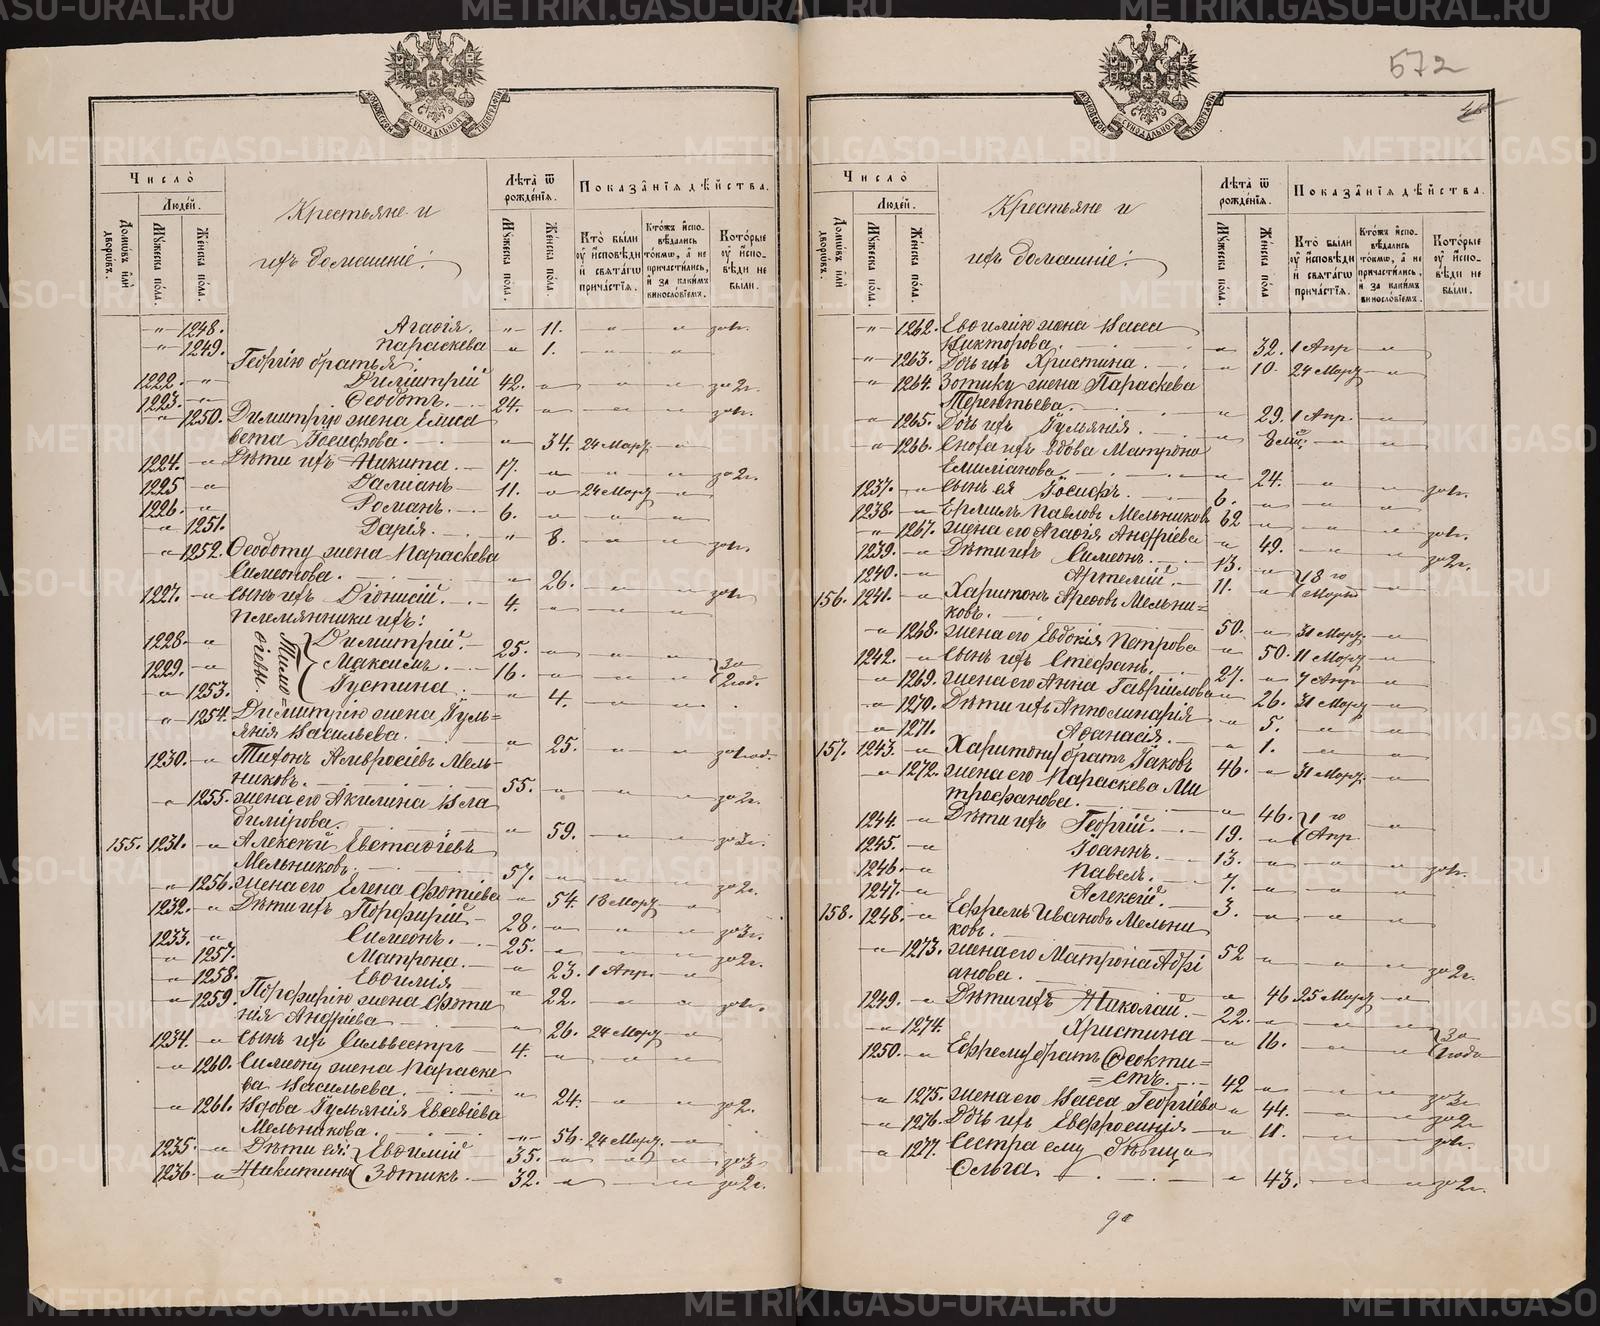 572
45
Число
Людей.
Домовъ или дворовъ.
Мужеска пола.
Женска пола.
Крестьяне и
ихъ домашніе:
Лѣта ѿ рожденія.
Мужеска пола.
Женска пола.
Показанія дѣйства.
Кто были у исповѣди и святаго причастія.
Кто жъ исповѣдались токмо, а не причастились, и за какимъ винословіемъ.
Которые у исповѣди не были.
" 1248. Агафія. " 11. " " за 1г.
" 1249. Параскева " 1. " "
Георгію братья:
1222. " Димитрій 42. " " " за 2г.
1223. " Ѳеодотъ. 24. " " " за 1г.
" 1250. Димитрію жена Елиса
вета Іосифова. " 34. 24 Март. "
1224. " Дѣти ихъ Никита. 17. " " " за 2г.
1225 " Даміанъ 11. " 24 Март "
1226. " Романъ. 6. " " "
" 1251. Дарія. " 8. " " за 1г.
" 1252. Ѳеодоту жена Параскева
Симеонова. " 26. " " за 1г.
1227. " Сынъ ихъ Діонисій. 4. " " "
Племянники ихъ:
Тимоѳеевы
1228. " Димитрій. 25. " " "
1229. " Максимъ. 16. " " " За 2 год.
" 1253. Іустина. " 4. " "
" 1254. Димитрію жена Іуль=
янія Васильева. " 25. " " за 1 год.
1230. " Тихонъ Амвросіевъ Мель-
никовъ. 55. " " " за 2г.
" 1255. жена его Акилина Вла
димірова. " 59. " " за 3г.
155. 1231. " Алексѣй Евстафіевъ
Мельниковъ. 57. " " " за 2г.
" 1256. жена его Елена Фотіева " 54. 18 Март "
1232. " Дѣти ихъ Порфирій 28. " " " за 3г.
1233. " Симеонъ. 25. " " " за 2г.
" 1257. Матрона. " 23. 1 Апр. "
" 1258. Евфимія " 22. " " за 1г.
" 1259. Порфирію жена Фоти
нія Андріева " 26. 24 Март "
1234. " Сынъ ихъ Сильвестръ 4. " " "
" 1260. Симеону жена Параске
ва Васильева. " 24. " " за 2.
" 1261. Вдова Іульянія Евсевіева
Мельникова. " 56. 24 Март. "
1235. " Дѣти ея: Евфимій 35. " " " за 3
1236. " Никитины Зотикъ. 32. " " " за 2г.
Число
Людей.
Домовъ или дворовъ.
Мужеска пола.
Женска пола.
Крестьяне и
ихъ домашніе:
Лѣта ѿ рожденія.
Мужеска пола.
Женска пола
Показанія дѣйства.
Кто были у исповѣди и святаго причастія.
Кто жъ исповѣдались токмо, а не причастились, и за какимъ винословіемъ.
Которые у исповѣди не были.
" 1262. Евфимію жена Васса
Викторова. " 32. 1 Апр "
" 1263. Дочь ихъ Христина. " 10. 24 Март "
" 1264. Зотику жена Параскева
Терентьева. " 29. 1 Апр. "
" 1265. Дочь ихъ Іульянія. " 8 мѣс. " "
" 1266. Сноха ихъ вдова Матрона
Емиліанова. " 24. " " за 1г.
1237. " Сынъ ея Іосифъ. 6. " " "
1238. " Ермилъ Павловъ Мельниковъ 62 " " " за 1г.
" 1267. жена его Агафія Андріева " 49. " " за 2г.
1239. " Дѣти ихъ Симеонъ. 13. " 18 го Марта
1240. " Артемій. 11. "
156. 1241. " Харитонъ Арефовъ Мельни=
ковъ. 50. " 31 Март "
" 1268. жена его Евдокія Петрова " 50. 11 Март "
1242. " Сынъ ихъ Стефанъ. 27. " 7 Апр "
" 1269. жена его Анна Гавріилова " 26. 31 Март "
" 1270. Дѣти ихъ Апполинарія " 5. " "
" 1271. Афанасія. " 1. " "
157. 1243. " Харитону братъ Іаковъ 46. " 31 Март "
" 1272. жена его Параскева Ми
трофанова. " 46. 1 го Апр "
1244. " Дѣти ихъ Георгій. 19. "
1245. " Іоаннъ. 13. " " " за 1г.
1246. " Павелъ. 7. " " "
1247. " Алексій. 3. " " "
158. 1248. " Ефремъ Ивановъ Мельни
ковъ. 52 " " " за 2г.
" 1273. жена его Матрона Адрі
анова. " 46 25 Март "
1249. " Дѣти ихъ Николай. 22. " " " За 1 года
" 1274. Христина " 16. " "
1250. " Ефрему братъ Ѳеокти=
=стъ. 42 " " " за 3г
" 1275. жена его Васса Георгіева " 44. " " за 2г
" 1276. Дочь ихъ Евфросинія " 11. " " за 1г.
" 1277. Сестра ему дѣвица
Ольга. " 43. " " за 2г.
METRIKI.GASO-URAL.RU